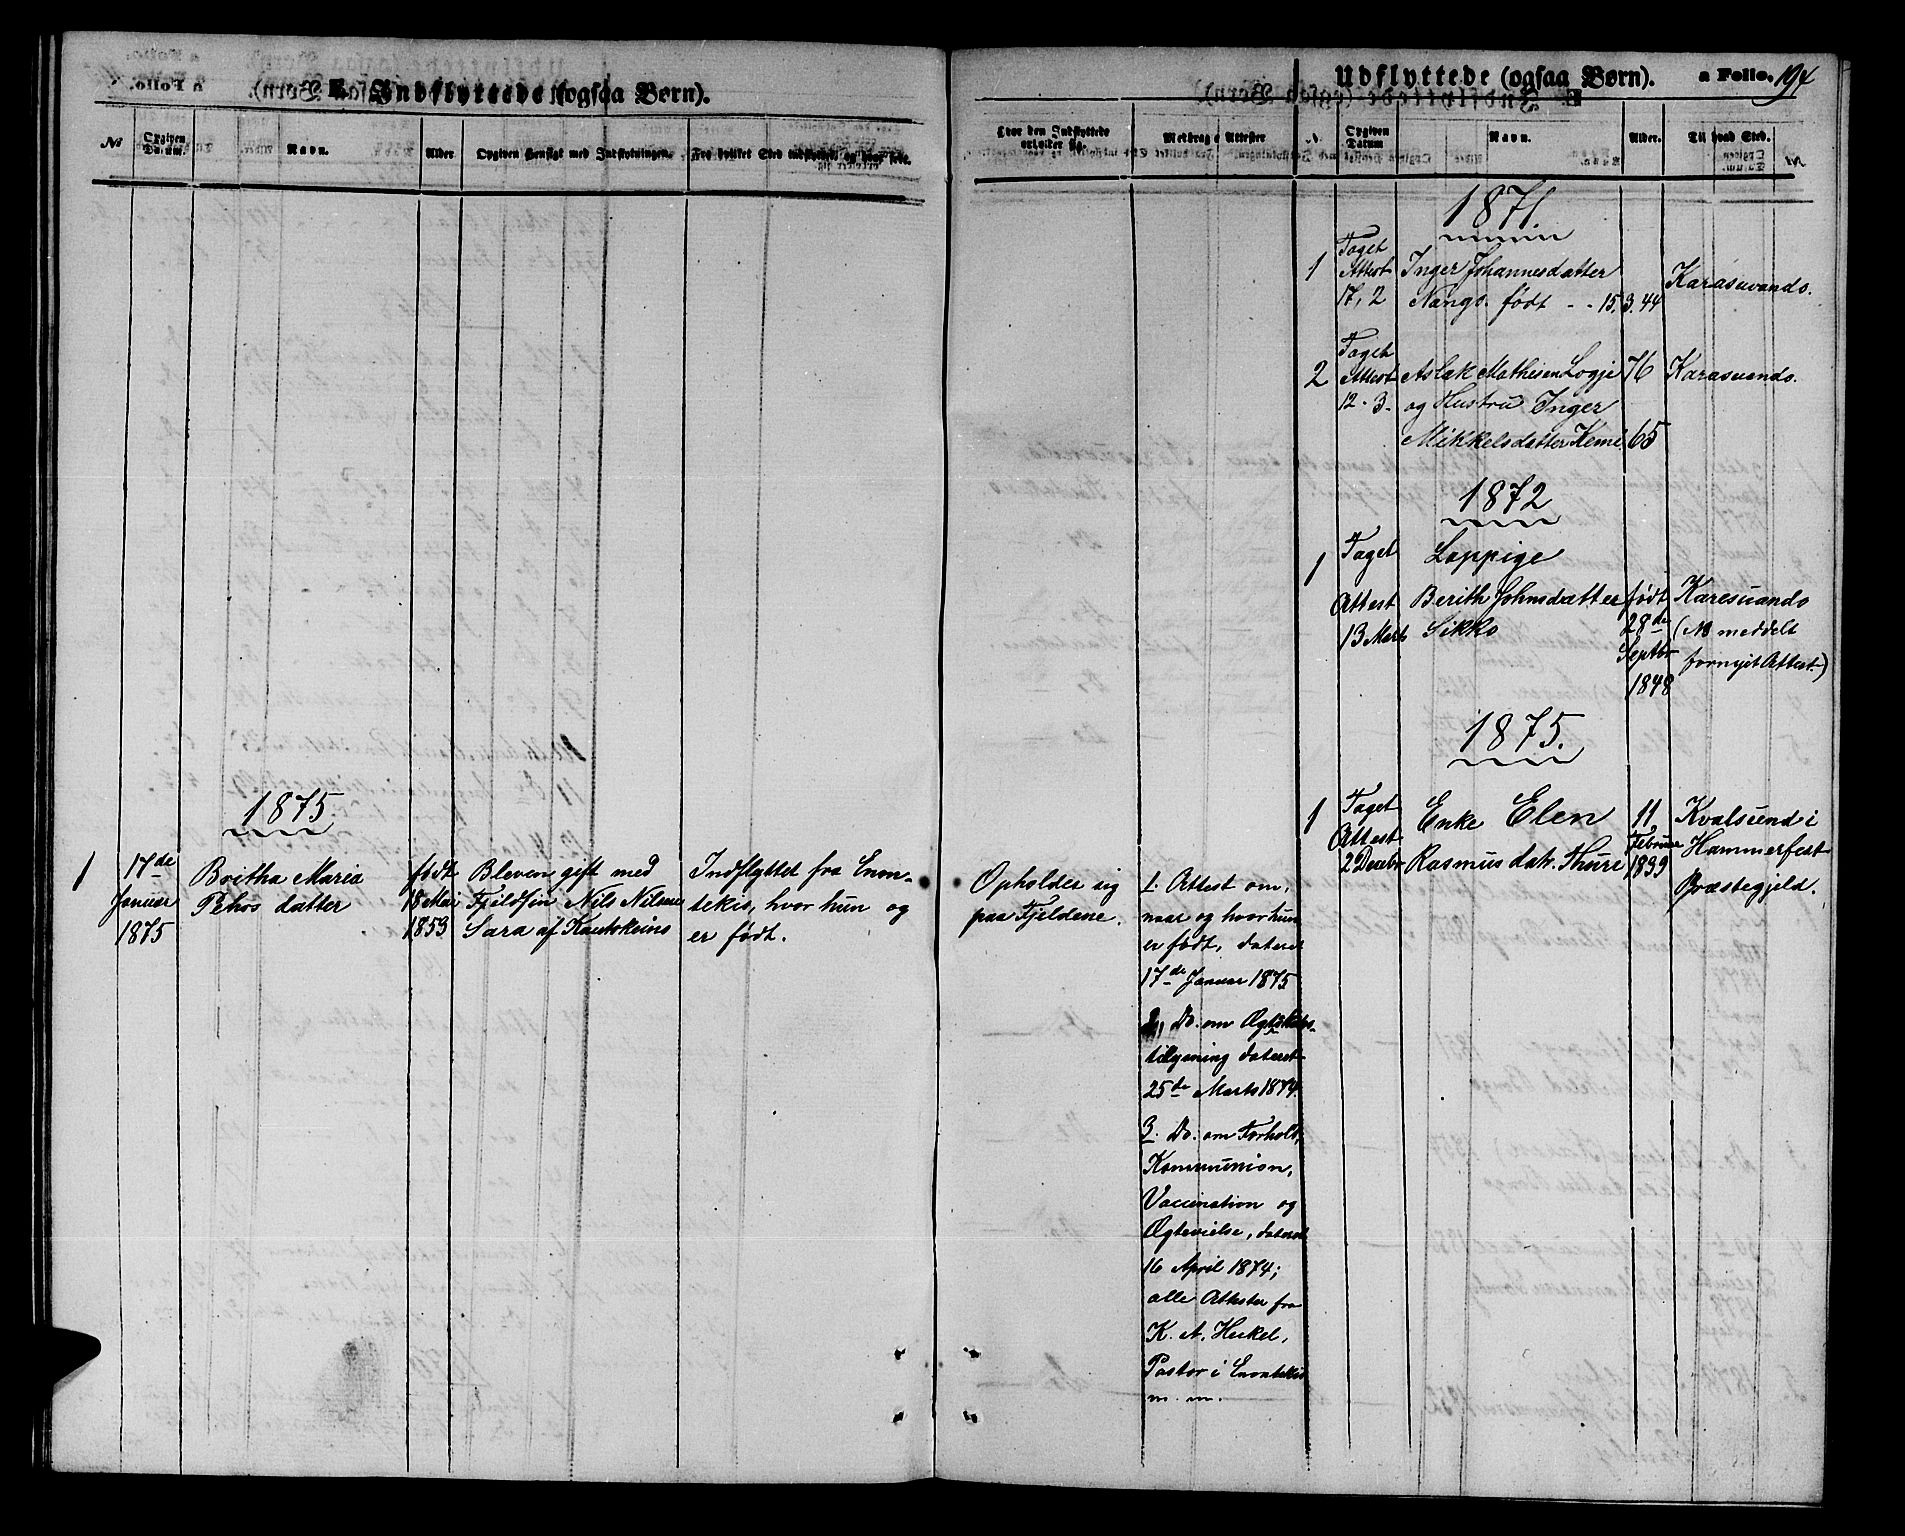 E. Indflyttede (ogsaa Børn).
No
Opgiven Datum.
Navn.
Alder
Opgiven Hensigt med Indflytningen.
Fra hvilket Sted indflyttet, og naar
1875
1
17de
Januar
1875
Britha Maria
datter
født
18 Mai
1853
Bleven gift med
Fjeldfin Nils Nilsen
Sara af Kautokeino
Indflyttet fra Enon-
tekis, hvor hun og
er født.
Hvor den Indflyttede opholder sig.
Medbragte Attester
Opholder sig
paa Fjeldene.
1. Attest om,
naar og hvor hun
er født, dateret
17de Januar 1875
2, Do. om Ægteskabs-
tillysning dateret
25de Marts 1874.
3. Do. om Forhold,
Kommunion,
Vaccination og
Ægtevielse, dateret
16 April 1874;
alle Attester fra
K. A. Heikel,
Pastor i Enontekis
m. m.
Udflyttede (ogsaa Børn).
a Folio. 194
N.
Opgiven Datum
Navn.
Alder.
Til hvad Sted.
1871.
1
Taget
Attest
17, 2
Inger Johannesdatter
Nango. født - - 15, 3. 44
Karasuvando.
2
Taget
Attest
12. 3.
Aslak Mathisen Logje 76
og Hustru Inger
Mikkelsdatter Kemi 65
Karasuando.
1872
1
Taget
Attest
13 Marts
Lappige
Berith Johnsdatter
Sikko
født
28de
Septbr
1848
Karesuando
(NB meddelt
fornyet Attest)
1875.
1
Taget
Attest
2 Decebr
Enke Elen
Rasmusdatr. Thuri
11
Februar
1839
Kvalsund i
Hammerfest
Præstegjeld.